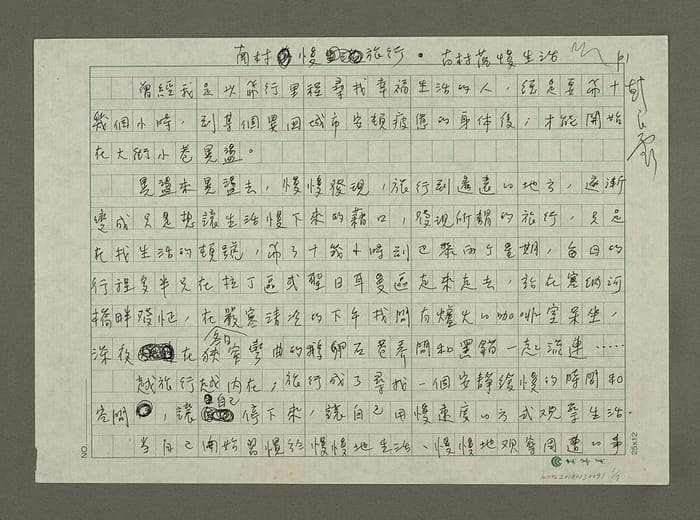 南村慢旅行・古村落慢生活 p1
曾經我是以飛行里程尋找幸福生活的人，總是要飛十
幾個小時，到某個異國城市安頓疲憊的身体後，才能開始
在大街小巷晃盪。
晃盪來晃盪去，慢慢發現，旅行到遙遠的地方，逐漸
變成只是想讓生活慢下來的藉口，發現所謂的旅行，只是
在找生活的頓號，飛了十幾小時到巴黎兩个星期，每日的
行程多半只在拉丁區或聖日耳曼區走來走去，站在塞納河
橋畔發怔，在嚴寒清冷的下午找間有爐火的咖啡室呆坐，
深夜在狹窄彎曲的鵝卵石巷弄間和黑貓一起流連……
越旅行越內在，旅行成了尋找一個安靜緩慢的時間和
空間，讓自己停下來，讓自己用慢速度的方式观察生活。
當自己開始習慣於慢慢地生活、慢慢地观察周遭的事
NO.
25x12